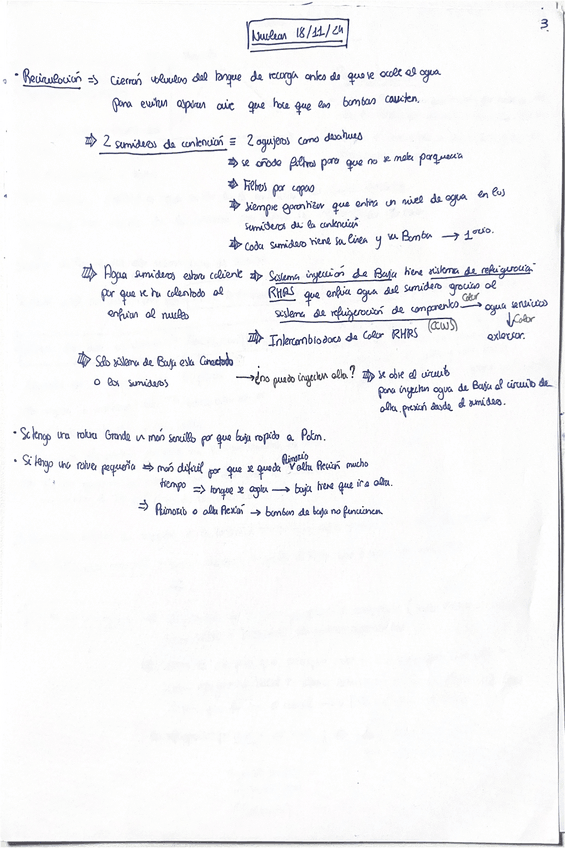 Nuclear 18/11/24
3
· Recirculación => Cierran valvulas del tanque de recarga antes de que se acabe el agua
para evitar aspirar aire que hace que las bombas caviten.
=> 2 sumideros de contención ≡ 2 agujeros como desagües
=> se añade filtros para que no se meta porqueria
=> Filtros por capas
=> siempre garantizar que entra un nivel de agua en los
sumideros de la contención
=> Cada sumidero tiene su linea y su Bomba →
=> Agua sumideros estara caliente
por que se ha calentado al
enfriar al nucleo
=> Sistema inyección de Baja tiene sistema de refrigeración
RHRS que enfria agua del sumidero gracias al
sistema de refrigeración de componentes → Calor agua servicios
(CCWS) ↓ Calor
=> Intercambiadora de Calor RHRS exterior.
=> Solo sistema de Baja esta Conectado
a los sumideros
→ ¿no puedo inyectar alta? => se abre el circuito
para inyectar agua de Baja al circuito de
alta presión desde el sumidero.
· Si tengo una rotura Grande es más sencillo por que baja rapido a Patm.
· Si tengo una rotura pequeña => más dificil por que se queda Primario alta Presión mucho
tiempo => tanque se agota → baja tiene que ir a alta.
=> Primario a alta Presión → bombas de baja no funcionan